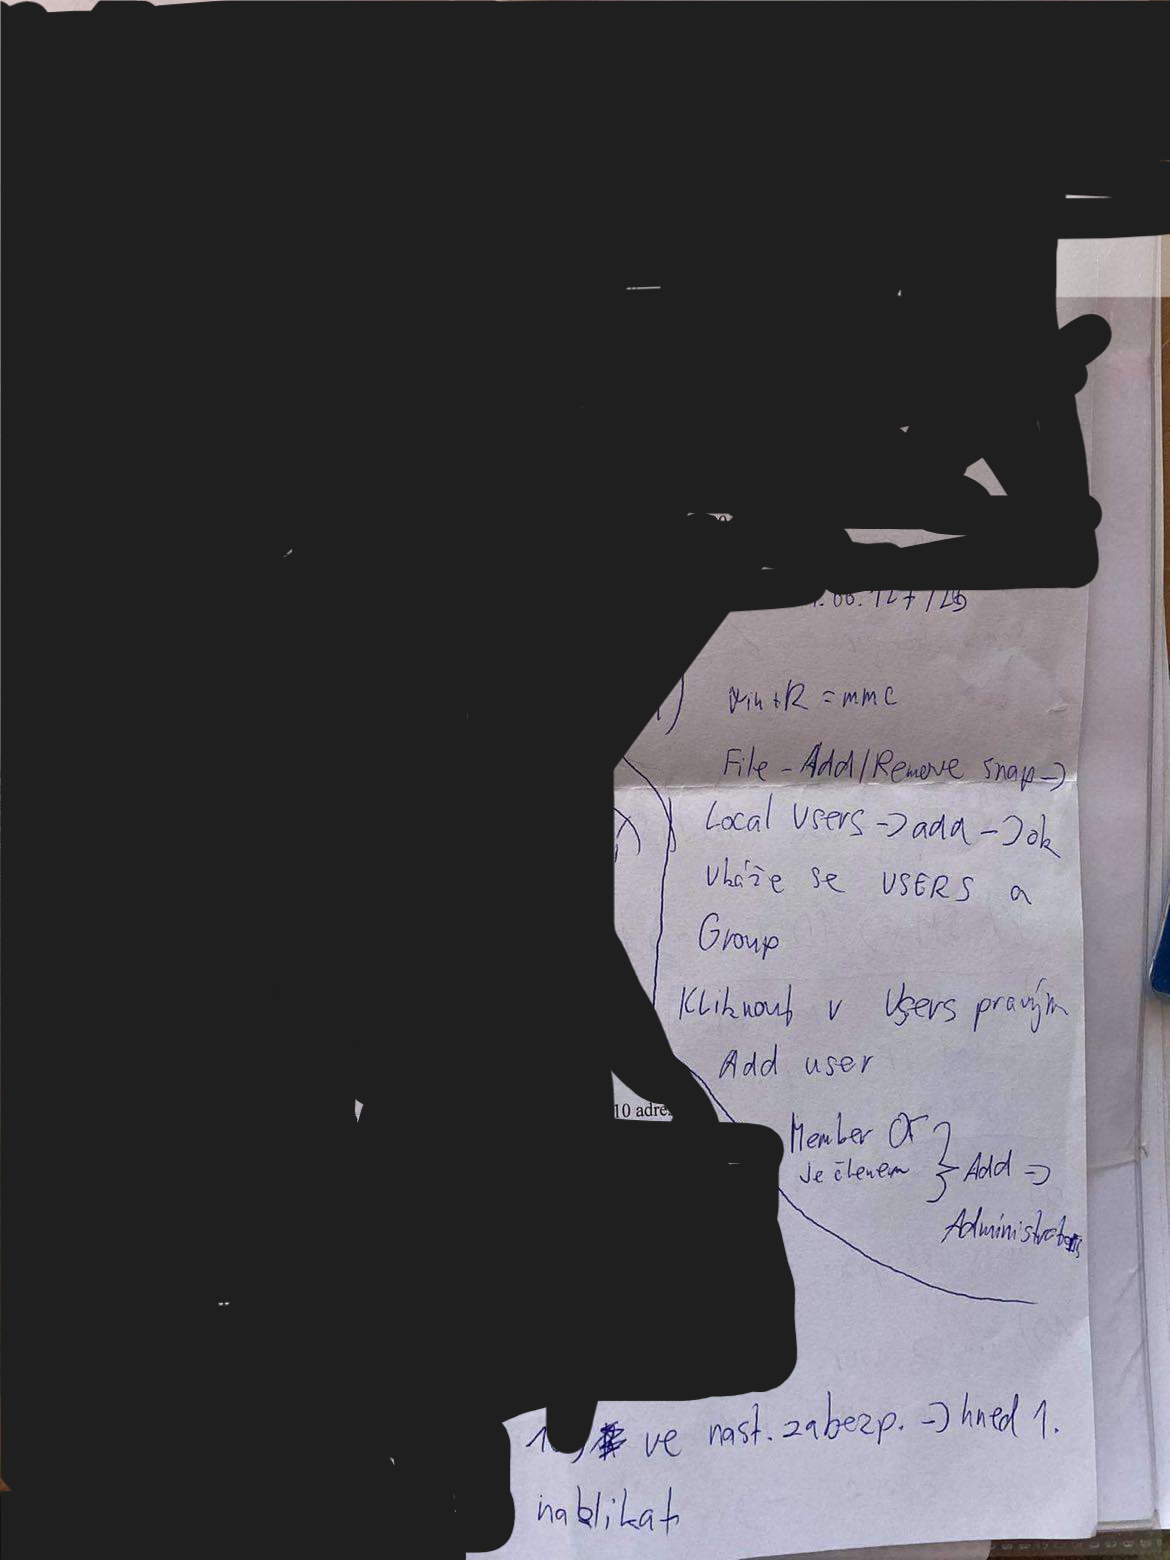 Win+R = mmc
File - Add/Remove snap ->
Local Users -> add -> ok
Ukáže se USERS a
Group
Kliknout v Users pravým
Add user
10 adre
Member Of
Je členem } Add ->
Administrators
ve nast. zabezp. -> hned 1.
naklikat